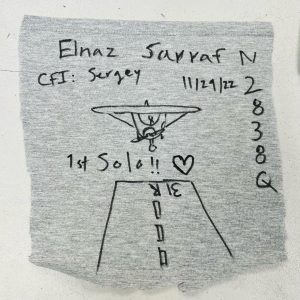 Elnaz Sarraf
CFI: Sergey
11/29/22
N
2
8
3
8
Q
1st Solo!! ♡
31
R